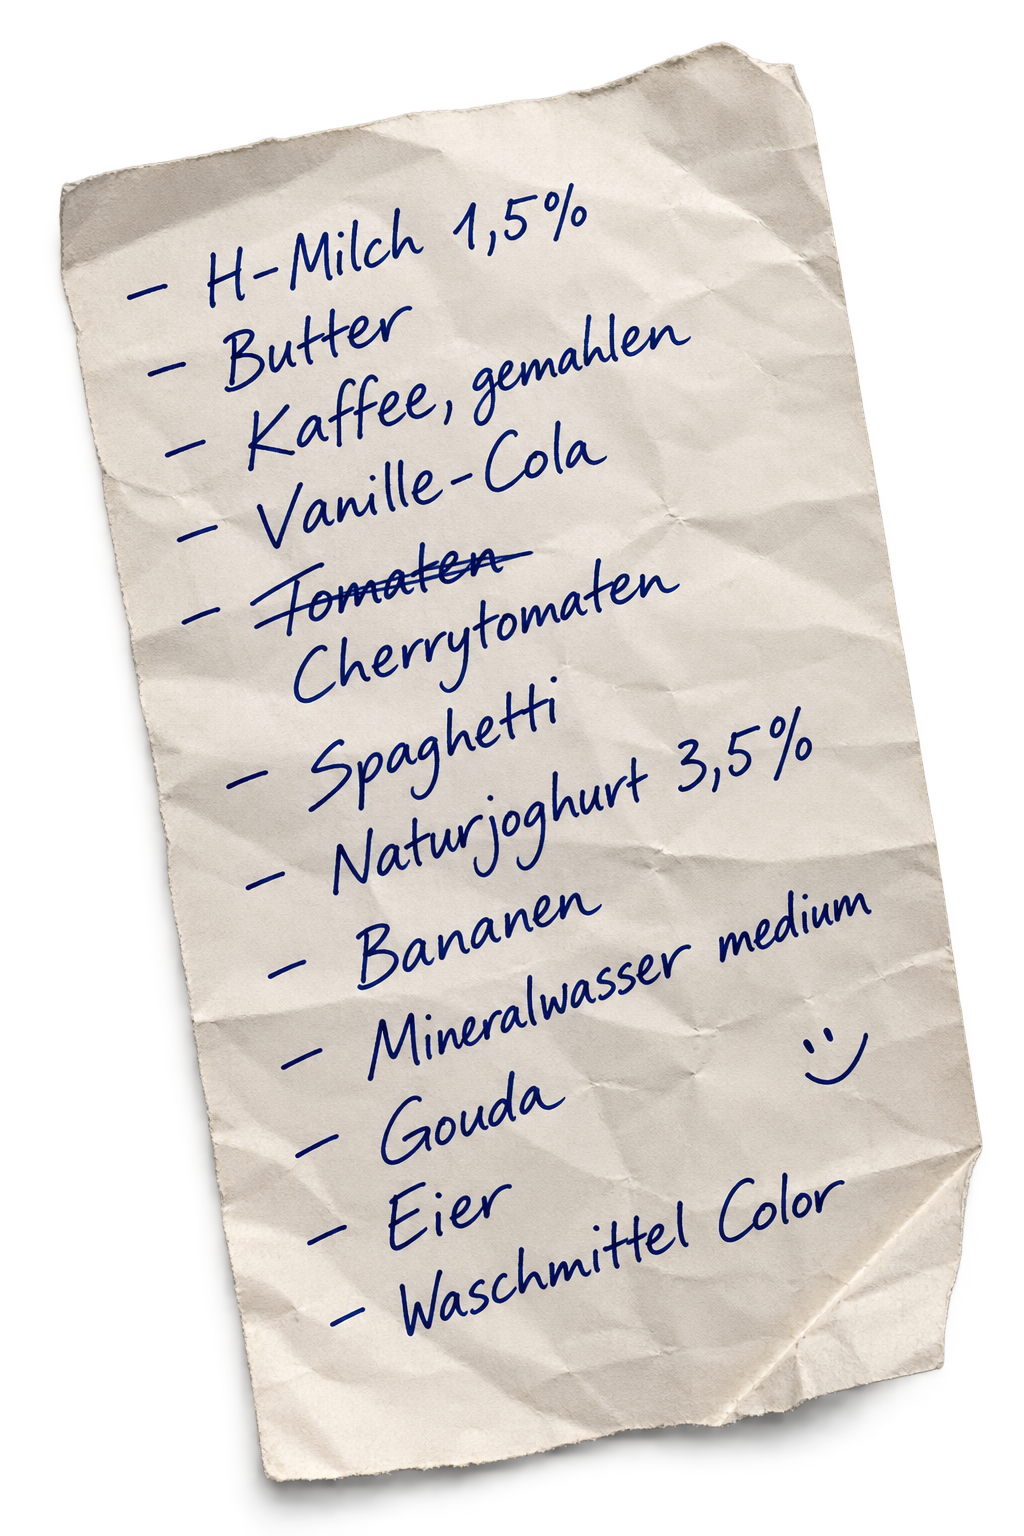 - H-Milch 1,5%
- Butter
- Kaffee, gemahlen
- Vanille-Cola
- ~~Tomaten~~
Cherrytomaten
- Spaghetti
- Naturjoghurt 3,5%
- Bananen
- Mineralwasser medium
- Gouda
- Eier
- Waschmittel Color